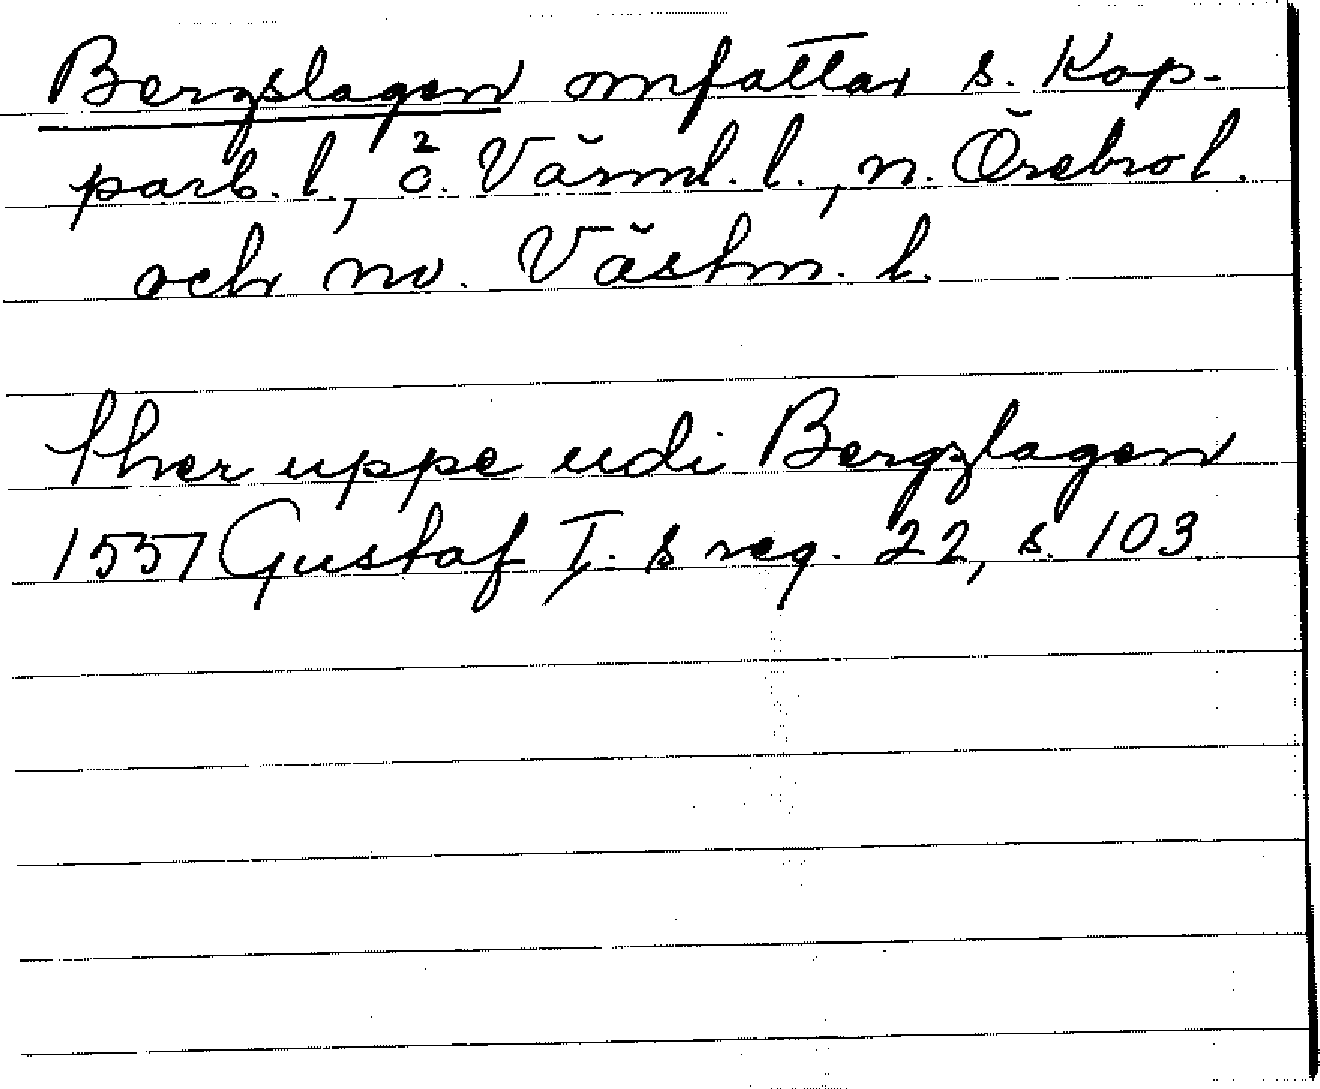 Bergslagen omfattar s. Kop-
parb. l., ö. Värml. l., n. Örebro l.
och nv. Västm. l.
ther uppe udi Bergzlagen
1557 Gustaf I:s reg. 22, s. 103